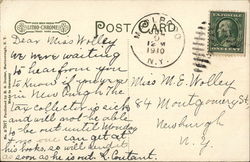 POST CARD
LITHO-CHROME
12 M
1910
N.Y.
Dear Miss Wolley
We were waiting
to hear from you
to know if you were
in Newburgh. The
tax collector is sick
and will not be able
to be out until Monday
can get at
his books, so will send it
as soon as he is out. L. Coutant.
Miss M. E. Wolley
84 Montgomery St.
Newburgh
N.Y.